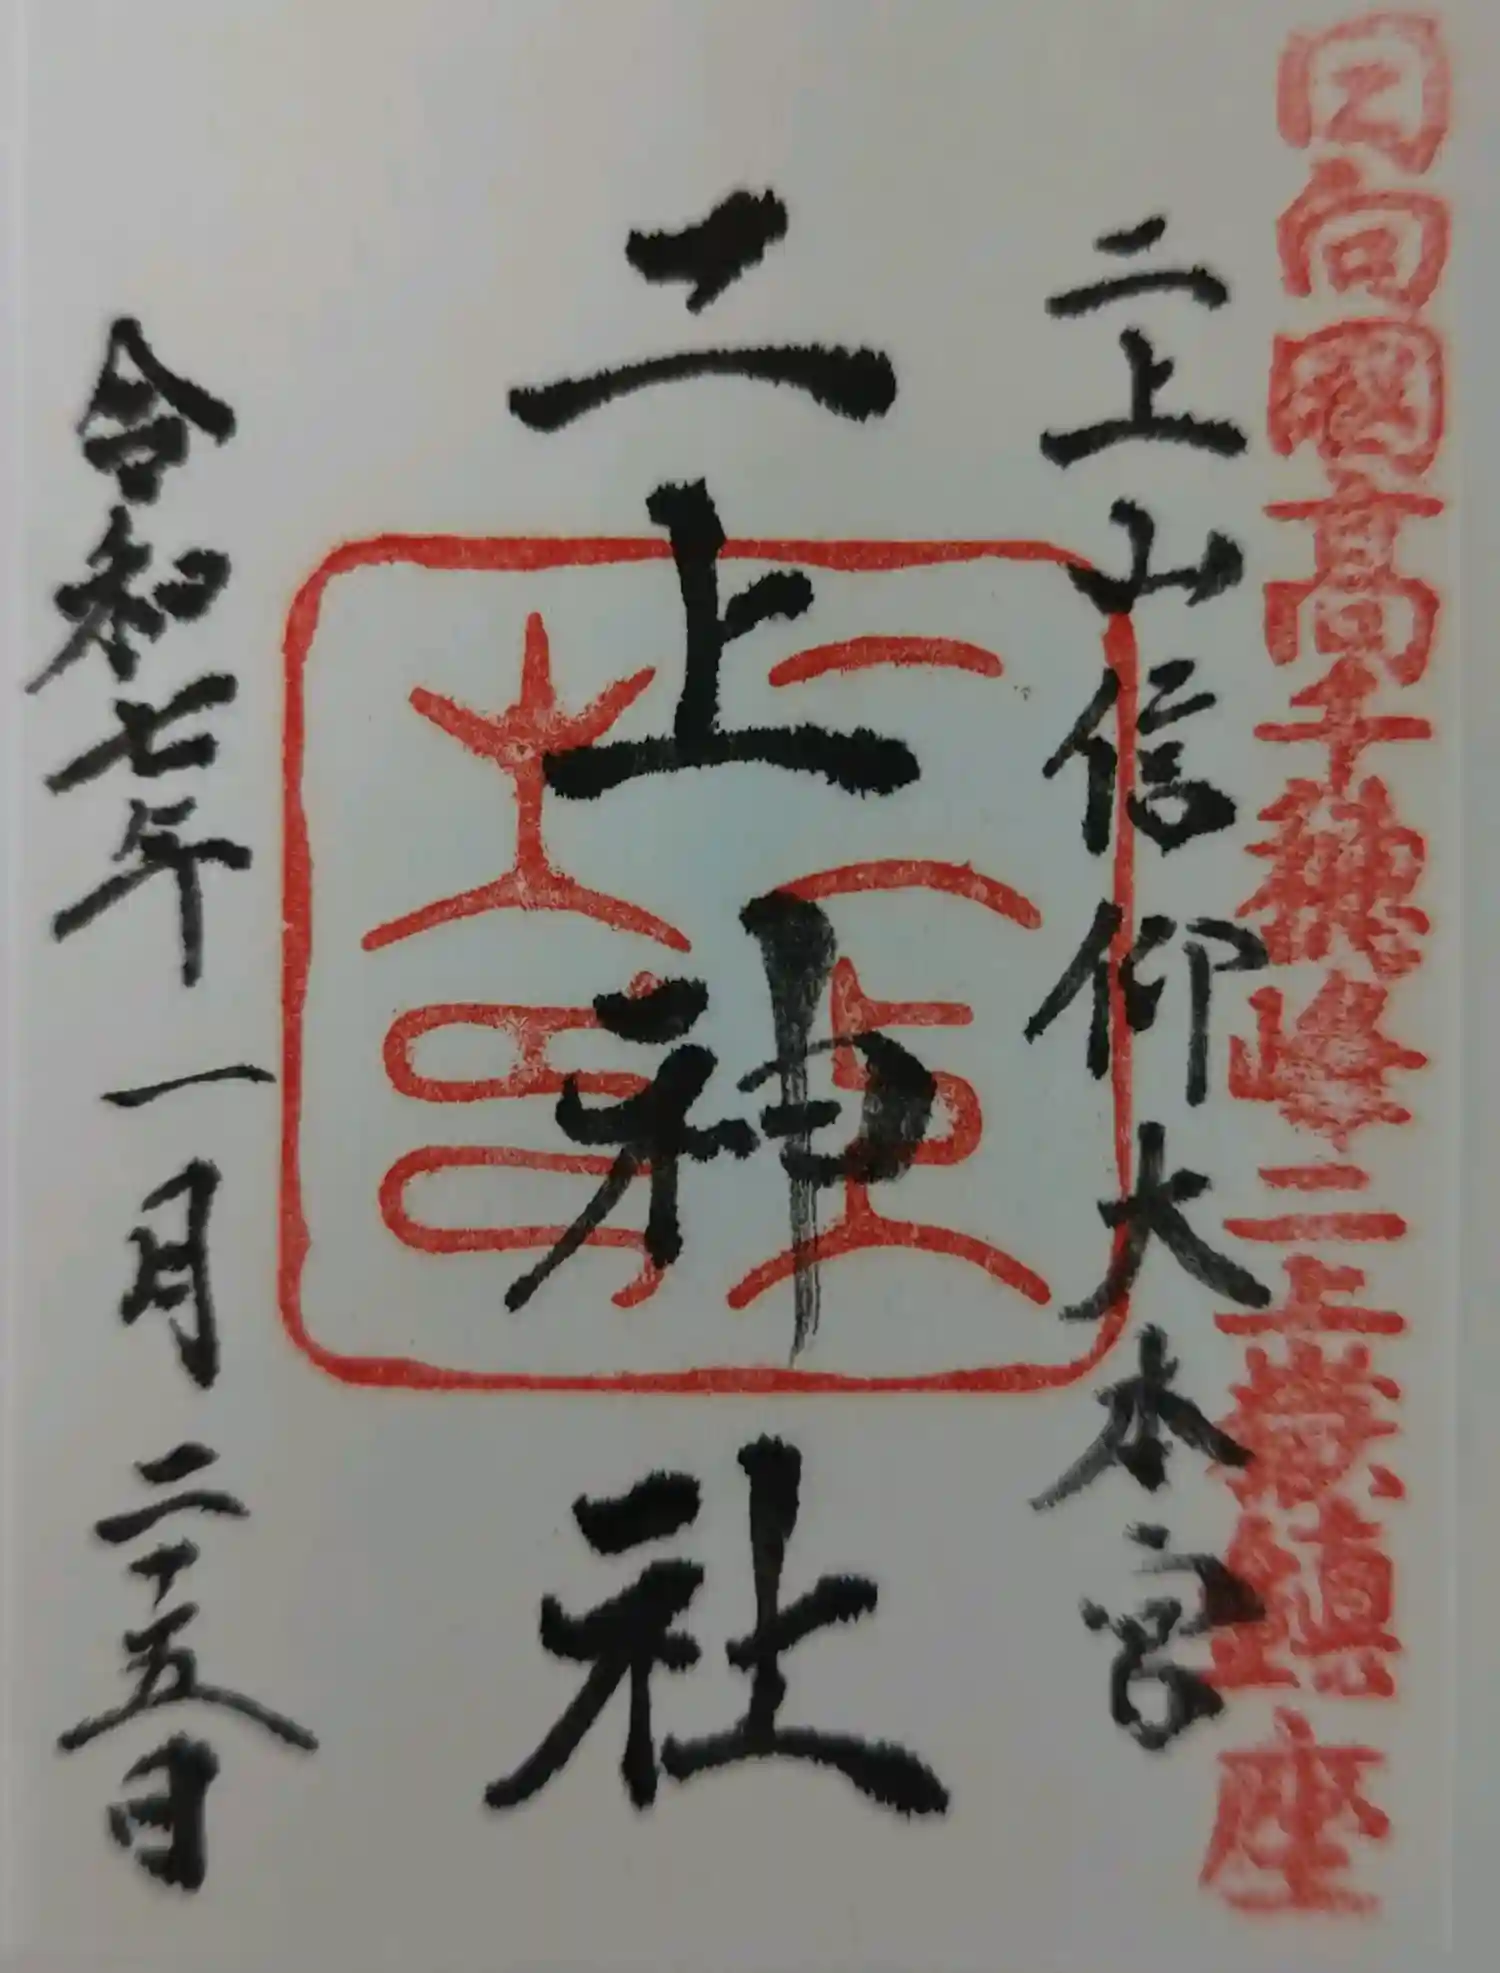 日向國高千穂峰二上嶽鎮座
二上山信仰大本宮
二上神社
二上
令和七年一月二十五日